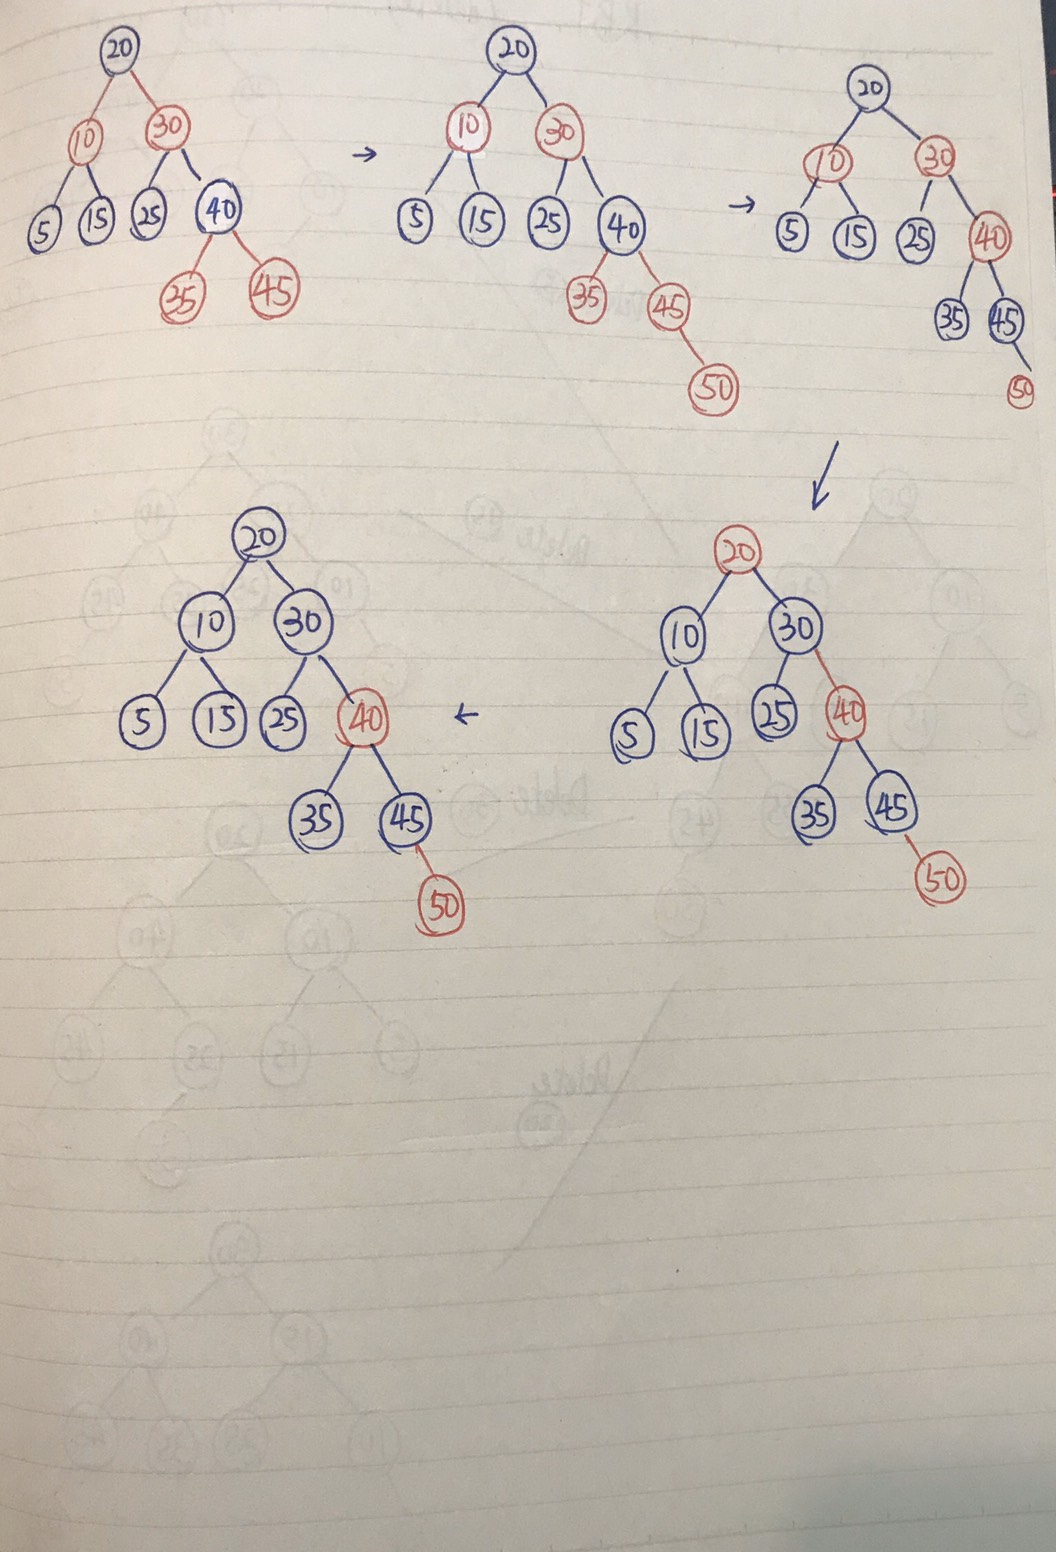 20
10 30
5 15 25 40
35 45
→
20
10 30
5 15 25 40
35 45
50
→
20
10 30
5 15 25 40
35 45
50
↓
20
10 30
5 15 25 40
35 45
50
←
20
10 30
5 15 25 40
35 45
50
Delete
Delete
Delete